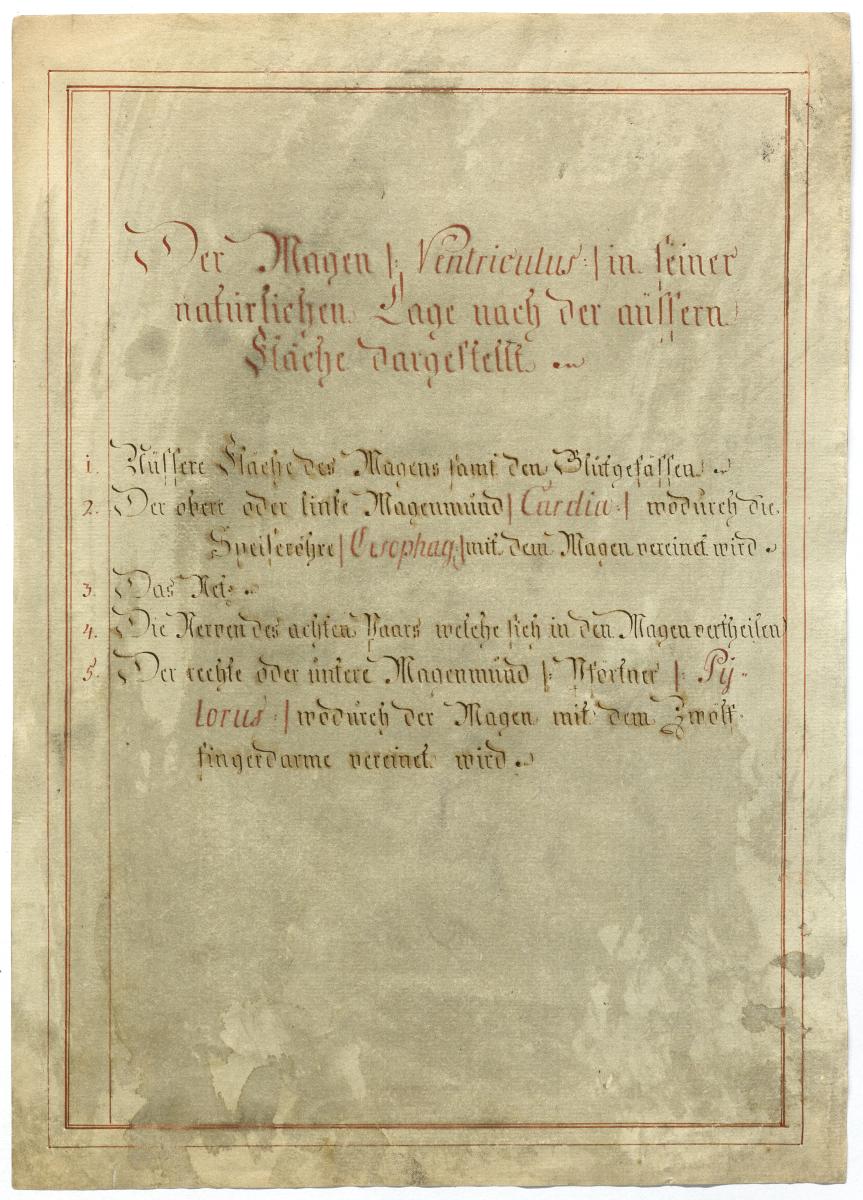 Der Magen |: Ventriculus :| in seiner
natürlichen Lage nach der aüssern
Fläche dargestellt.
1. Aüssere Fläche des Magens samt den Blutgefässen.
2. Der obere oder linke Magenmund |: Cardia :| wodurch die
Speiseröhre |: Oesophag: :| mit dem Magen vereinet wird.
3. Das Netz.
4. Die Nerven des achten Paars welche sich in den Magen vertheilen
5. Der rechte oder untere Magenmund |: Pförtner |: Py-
lorus :| wodurch der Magen mit dem Zwölf
fingerdarme vereinet wird.